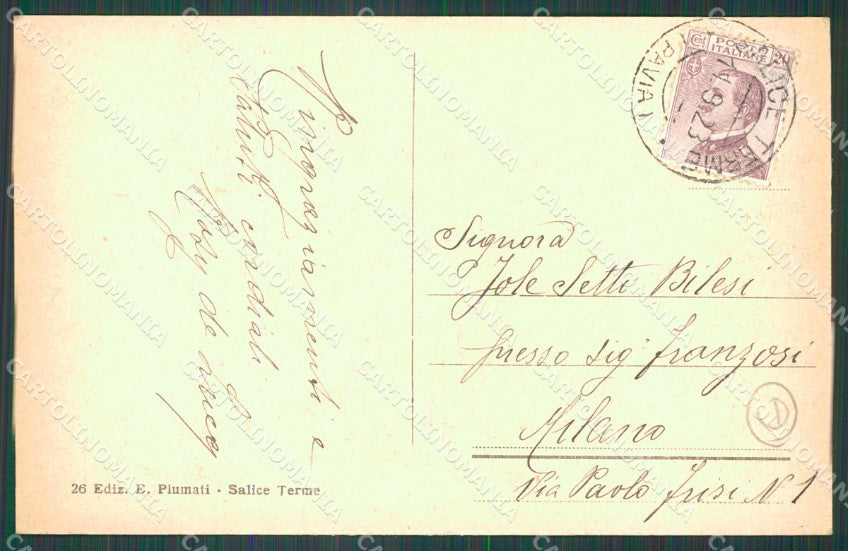 Ringraziamenti e
saluti cordiali
Rosy de Luca
26 Ediz. E. Piumati - Salice Terme
CENT. POSTE 20
ITALIANE
SALICE TERME
(PAVIA)
9.23
Signora
Jole Setti Bilesi
presso sig. Franzosi
Milano
Via Paolo Frisi N 1
CARTOLINOMANIA